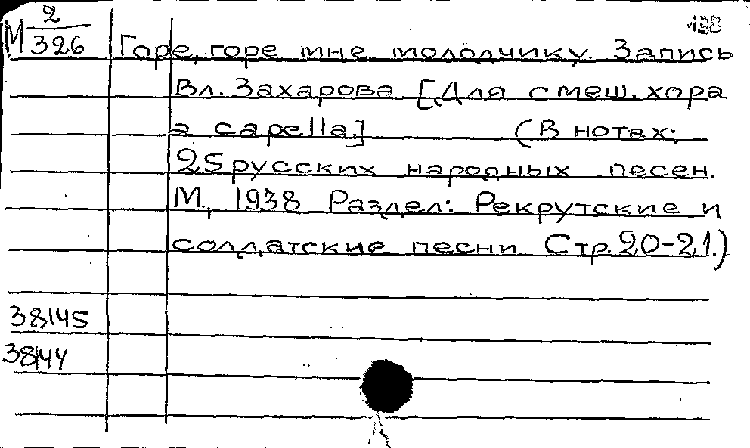 М 2/326 Горе, горе мне молодчику. Запись
Вл. Захарова [Для смеш. хора
a capella] (В нотах:
25 русских народных песен.
М, 1938 Раздел: Рекрутские и
солдатские песни. Стр. 20-21.)
38145
38144